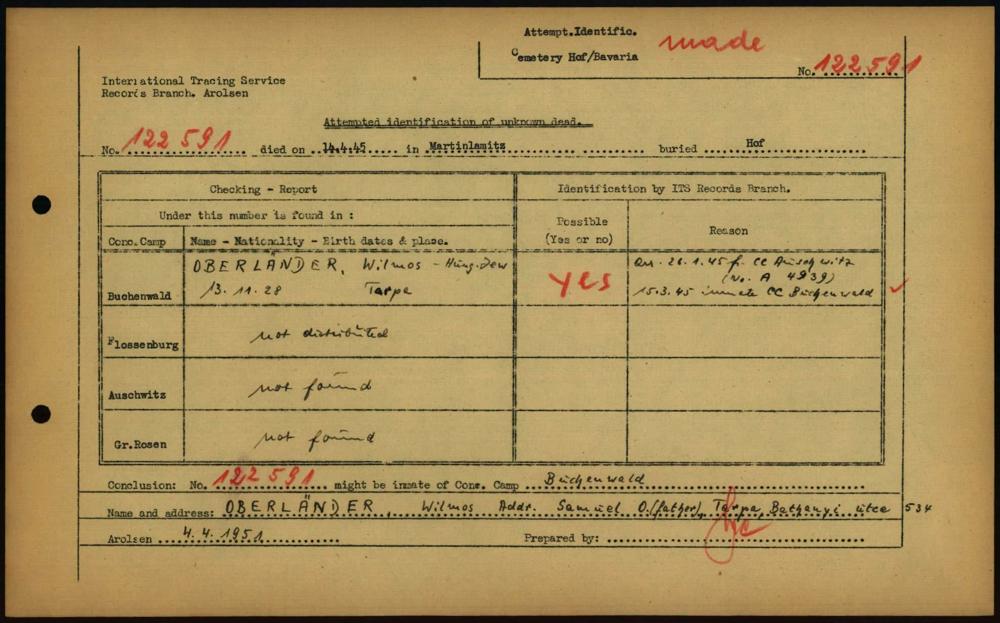 Attempt.Identific.
Cemetery Hof/Bavaria
made
No. 122591
International Tracing Service
Records Branch. Arolsen
Attempted identification of unknown dead.
No. 122591 died on 14.4.45 in Martinlamitz buried Hof
Checking - Report
Identification by ITS Records Branch.
Under this number is found in :
Possible
(Yes or no)
Reason
Conc.Camp
Name - Nationality - Birth dates & place.
Buchenwald
OBERLÄNDER, Wilmos - Hung. Jew
13.11.28 Tarpa
yes
arr. 26.1.45 f. CC Auschwitz
(No. A 4939)
15.3.45 inmate CC Buchenwald
Flossenburg
not distributed
Auschwitz
not found
Gr.Rosen
not found
Conclusion: No. 122591 might be inmate of Conc. Camp Buchenwald
Name and address: OBERLÄNDER, Wilmos Addr. Samuel O. (father), Tarpa, Bathanyi utca 534
Arolsen 4.4.1951
Prepared by: